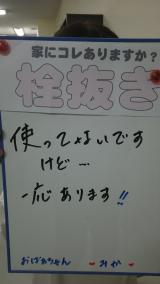 家にコレありますか?
栓抜き
使ってないです
けど…
一応あります!!
おばあちゃん ❤みか❤